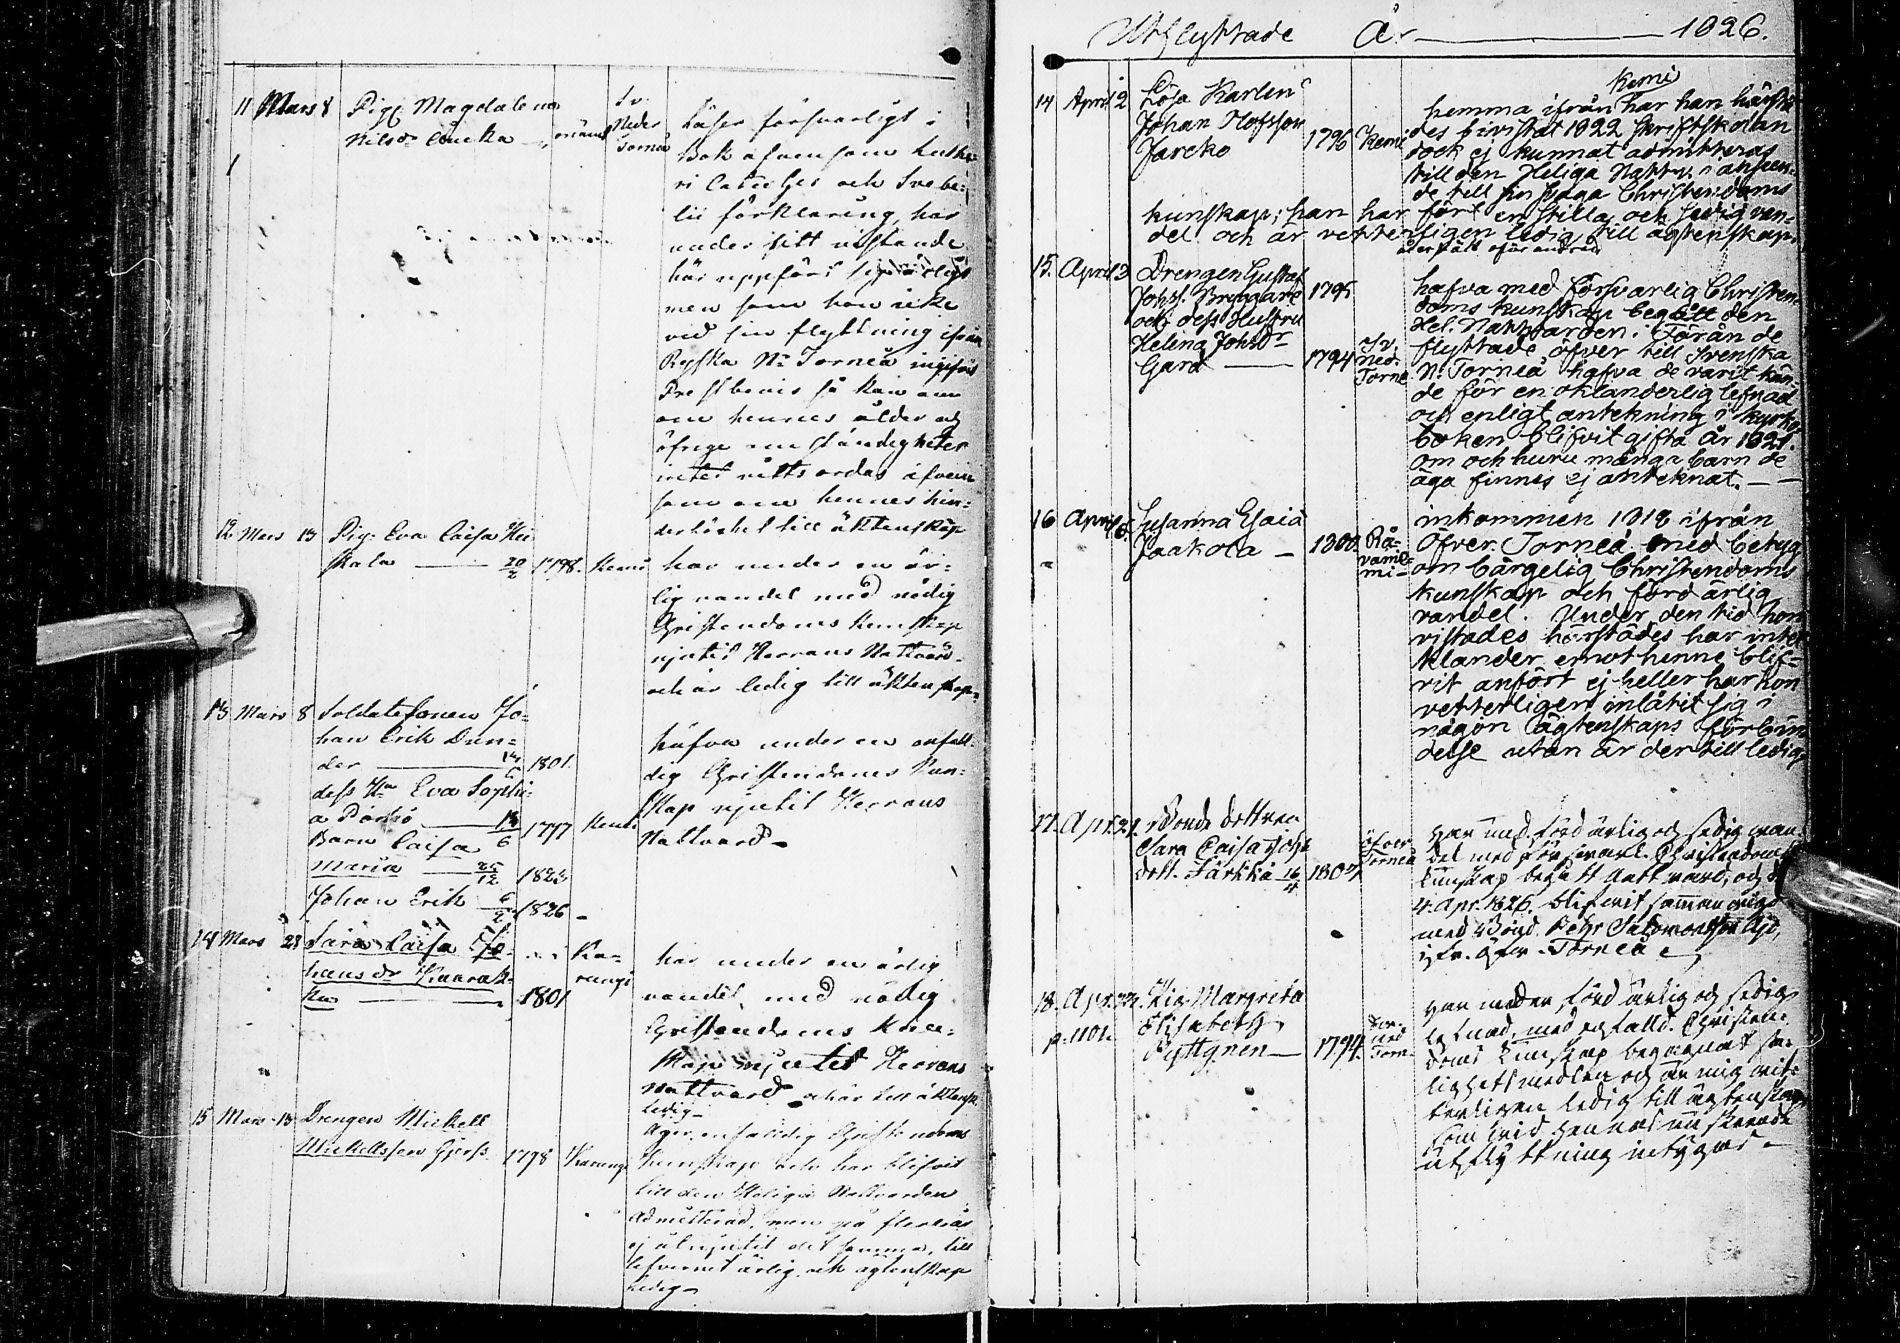 11 Mars 8 Pig: Magdalena
Nilsdr onämd Sv: Neder Torneå
Läser försvarligt i
Bok äfvensom Luthe-
ri Cateches och Svebe-
lii förklaring, har
under sitt vistande
här uppfört sig ärligt
men som hon icke
vid sin flyttning ifrån
Ryska Nr Torneå ingifvit
Prestbevis så kan om
om hennes ålder och
öfrige omständigheter
intet rätts ordas äfven
som om hennes hin-
derlöshet till äktenskap
12 Mars 13 Pig: Eva Caisa Hei
skala 20/2 1798. Kemi
har under en är-
lig vandel med nödig
Christendoms kunskap
njutit Herrans Nattvard
och är ledig till äktenskap
13 Mars 8 Soldatesonen Jo-
han Erik Dun-
der 1801.
dess Hu Eva Sophi-
a 1797 Kemi
Barn Caisa
Maria 25/12 1823
Johan Erik 6/2 1826
hafva under en enfall-
dig Christendoms kun-
skap njutit Herrans
Nattvard
14 Mars 23 Sara Caisa Jo-
hansdr
1801 Ka-
rungi
har under en ärlig
vandel med nödig
Christendoms kun-
skap njutet Herrans
Nattvard och är till äktensk
ledig
15 Mars 13 Drengen Mickell
Mickellsson 1798 Karungi
Äger enfaldig Christendoms
kunskap och har blifvit
till den Heliga Nattvarden
Admitterad, men på flere år
ej åtnjutit det samma, till
lefvernet ärlig och ägtenskap
ledig
Utflyttade År 1826.
14 April 2 Lösa Karlen
Johan Olofsson
Jarcko 1796 Kemi
Kemi
hemma ifrån har han härstä
des bivistat 1822 Skriftskolan
dock ej kunnat admitteras
till den Heliga Nattv: i anseen-
de till sin svaga Christendoms
kunskap; han har fört en stilla och sedig van-
del och är vetterligen ledig till ägtenskap.
15. April 3 Drengen Gustaf
Johss. Bryggare 1795
och dess Hustru
Helena Johsdr
Gard 1794 Sv.
ned.
Torne
hafva med försvarlig Christen-
doms kunskap begått den
Hel. Nattvarden: Förän de
flyttade öfver till Svenska
N: Torneå hafva de varit kän-
de för en oklanderlig lefnad
och enligt antekning i kyrko
boken blifvit gifta År 1821.
Om och huru många barn de
äga finnes ej anteknat.
16 April 6 Susanna Esaia
Jaakola 1800. Ro-
vanie-
mi
inkommen 1818 ifrån
Öfver. Torneå med betyg
om bärgelig Christendoms
kunskap och förd ärlig
vandel. Under den tid hon
vistades härstädes har intet
klander emot henne blif-
vit anfört ej heller har hon
vetterligen inlåtit sig i
någon ägtenskaps förbin
delse utan är der till ledig
17. Apr. 21. Bonde dottren
Clara Caisa Johs
dott. Tärkkä 16/4 1807 öfver
Torneå
har med förd ärlig och sedig van
del med försvarl. Christendoms
kunskap begått Nattvard, och d
4. Apr. 1826 blifvit samman vigd
med Bond. Pehr Salomonsson
ifr. Öfv. Torneå
18. Apr. 22. Pig. Margreta
p. 1101. Elisabeth
Pyttgren 1794 Sv.
ned
Torn.
har under förd ärlig och sedig
lefnad, med enfalld. Christen-
doms kunskap begagnat sa-
lighetsmedlen och är mig vet-
terligen ledig till ägtenskap
som vid hennes önskande
utflyttning intygas